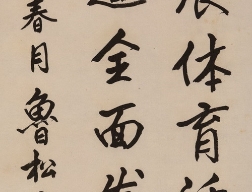 展体育活
全面发
春月魯松